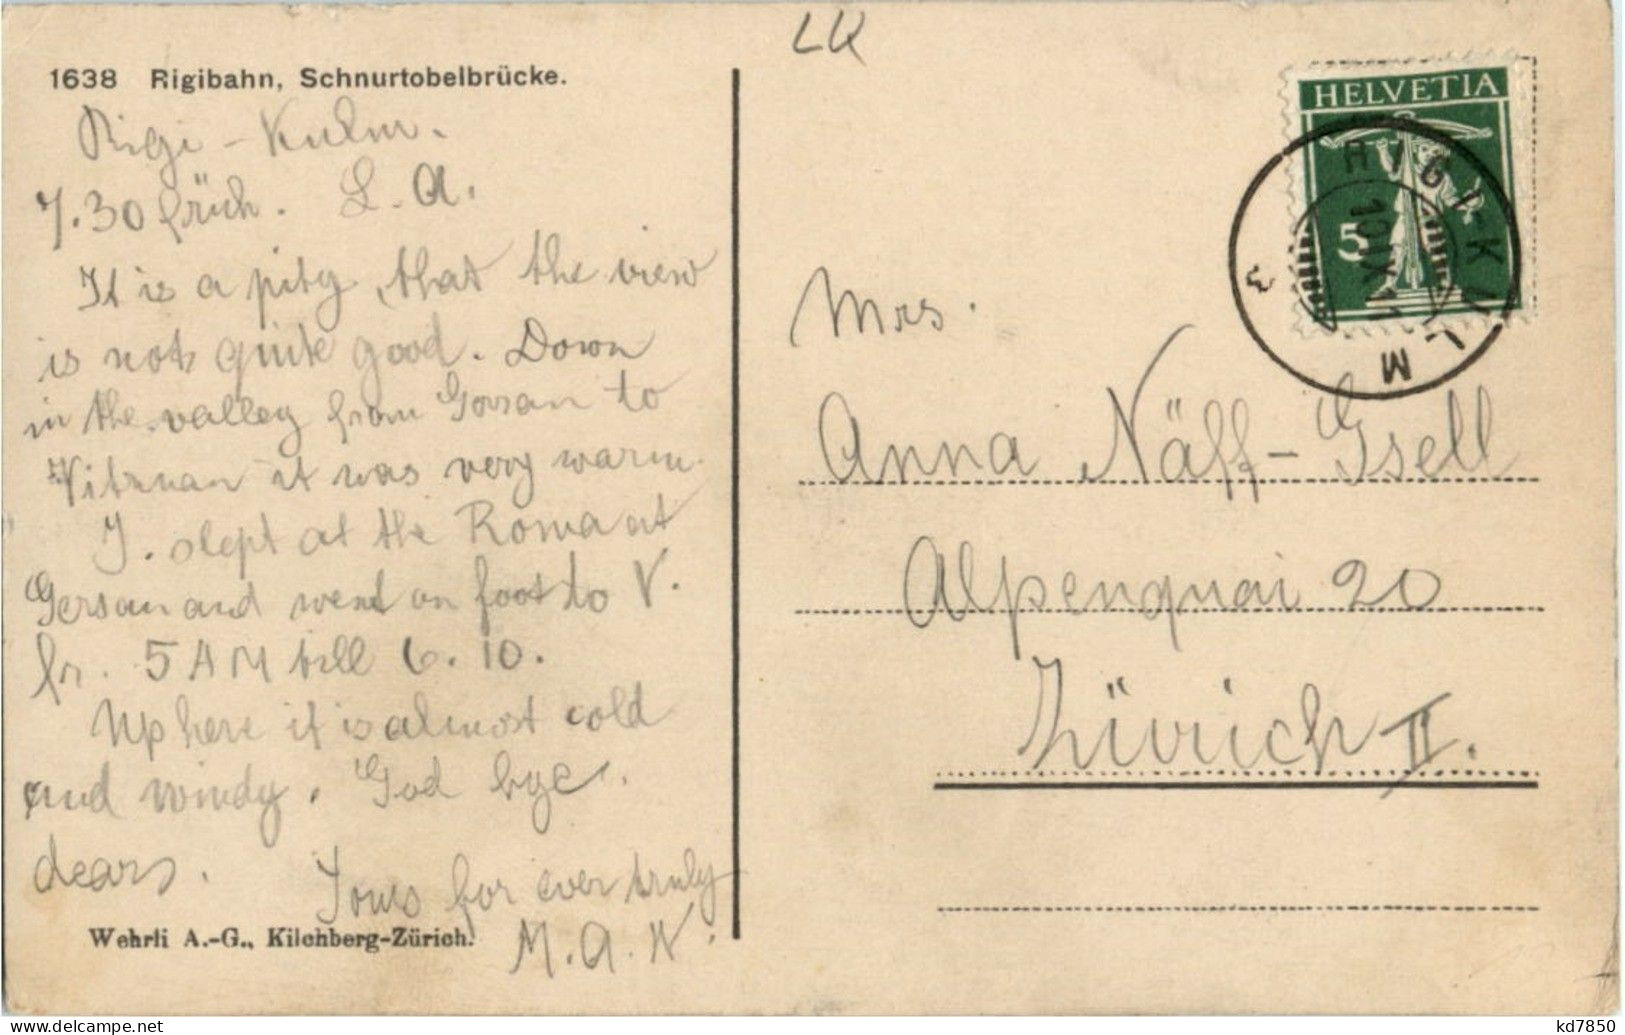 LQ
1638 Rigibahn, Schnurtobelbrücke.
Rigi - Kulm.
7.30 früh. L. A.
It is a pity, that the view
is not quite good. Down
in the valley from Gersan to
Vitznan it was very warm.
I. slept at the Roma at
Gersan and went on foot to V.
fr. 5 AM till 6.10.
Up here it is almost cold
and windy. God bye.
dears.
Yours for ever truly
M. A. N.
Wehrli A.-G., Kilchberg-Zürich.
HELVETIA
5
RIGI-KULM
10 IX 11
3
Mrs.
Anna Näff-Gsell
Alpenquai 20
Zürich II.
kd7850